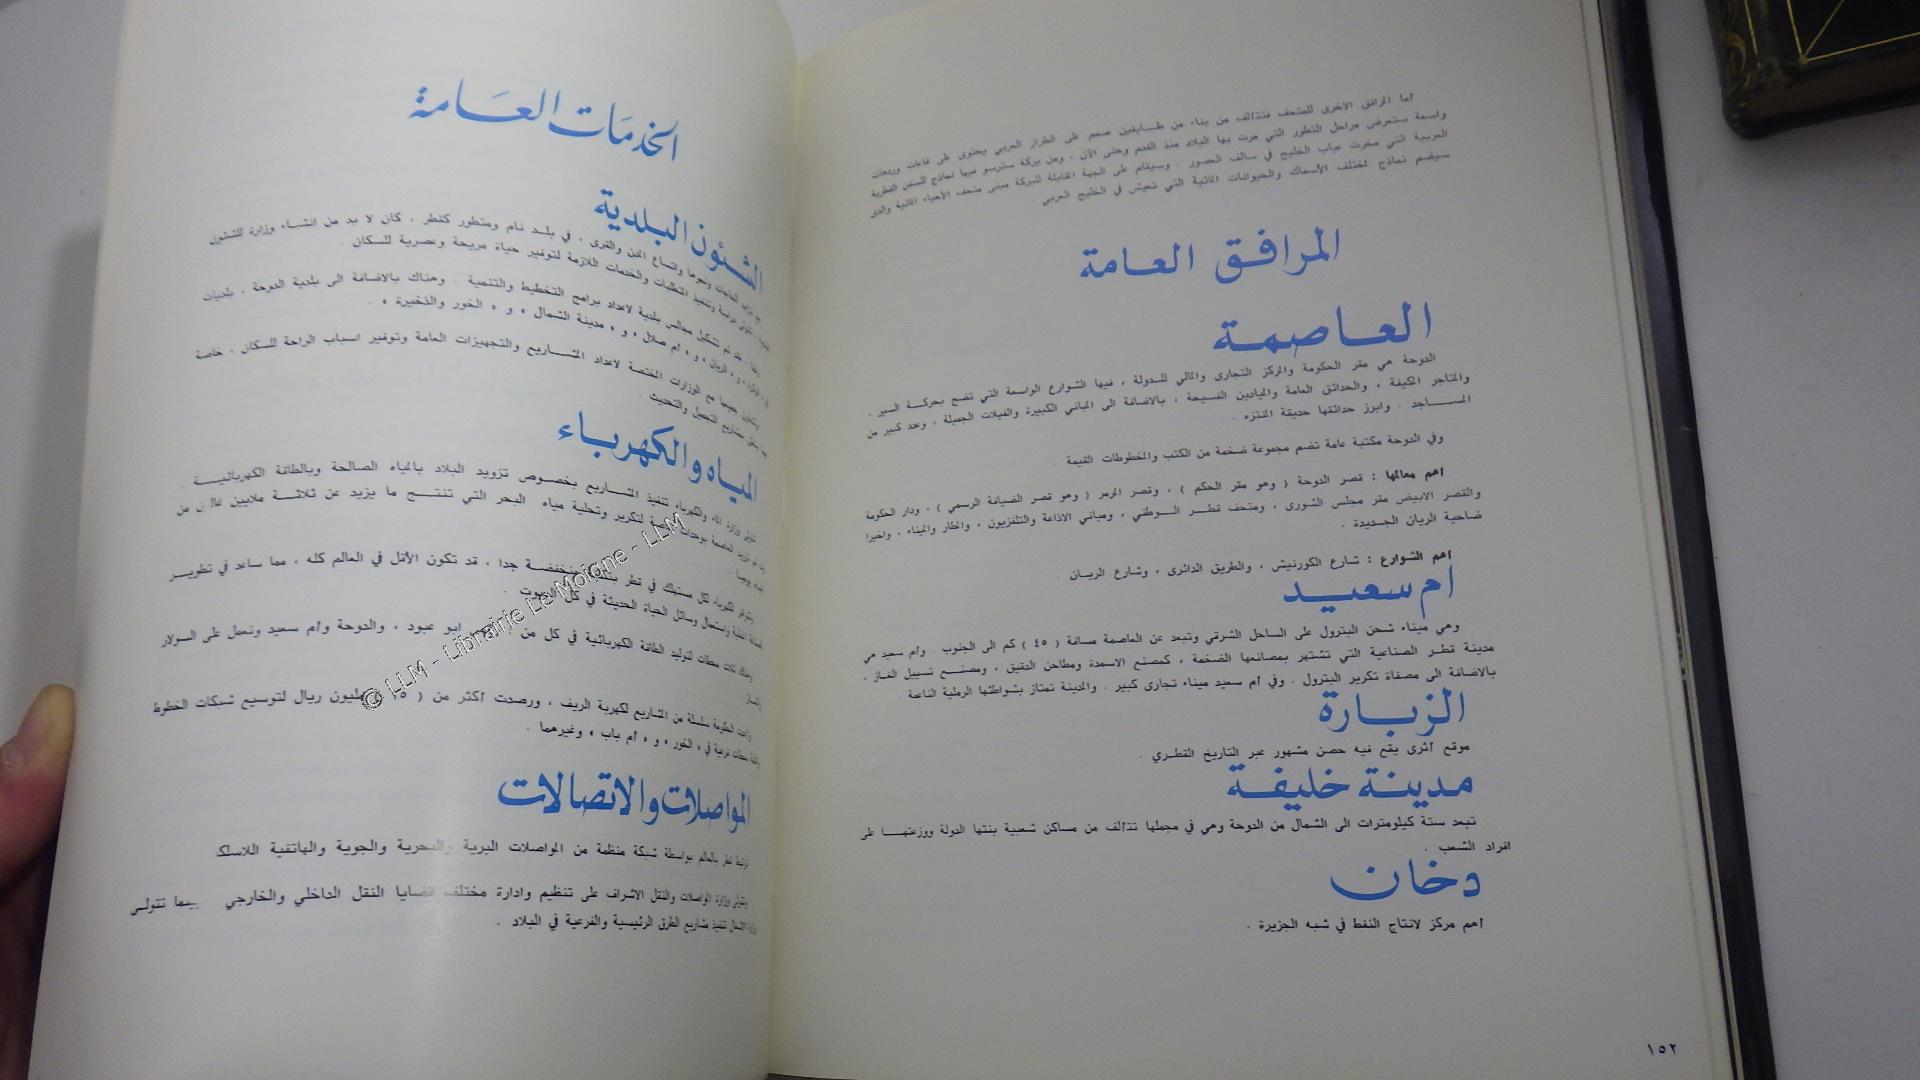 أما المرافق الاخرى للمتحف فتتألف من بناء من طـــابقين صمم على الطراز العربي يحتوى على قاعات وردهات
واسعة ستعرض مراحل التطور التي مرت بها البلاد منذ القدم وحتى الآن ، ومن بركة سترسو فيها نماذج للسفن القطرية
العربية التي مخرت عباب الخليج في سالف العصور . وسيقام على الجهة المقابلة للبركة مبنى متحف الأحياء المائية والذى
سيضم نماذج لختلف الأسماك والحيوانات المائية التي تعيش في الخليج العربي .
المرافق العامة
العاصمة
الدوحة هي مقر الحكومة والمركز التجارى والمالي للـدولة ، فيها الشوارع الواسعة التي تضج بحركـة السير ،
والمتاجر المكيفة ، والحدائق العامة والميادين الفسيحة ، بالاضافة الى المباني الكبيرة والفيلات الجميلة ، وعدد كبير من
المســـاجد . وابرز حدائقها حديقة المنتزه .
وفي الدوحة مكتبة عامة تضم مجموعة ضخمة من الكتب والمخطوطات القيمة .
أهم معالمها : قصر الدوحة ( وهو مقر الحكم ) ، وقصر المرمر ( وهو قصر الضيافة الرسمي ) ، ودار الحكومة
والقصر الابيض مقر مجلس الشورى ، ومتحف قطـر الـوطني ، ومباني الاذاعة والتلفزيون ، والمطار والميناء ، واخيرا
ضاحية الريان الجـديدة .
أهم الشوارع : شارع الكورنيش ، والطريق الدائرى ، وشارع الريـان .
أم سعيد
وهي ميناء شحن البترول على الساحل الشرقي وتبعد عن العاصمة مسافة ( ٤٥ ) كم الى الجنوب . وأم سعيد هي
مدينة قطـر الصناعية التي تشتهر بمصانعها الضخمة ، كمصنع الاسمدة ومطاحن الدقيق ، ومصنـع تسييل الغاز ،
بالاضافة الى مصفاة تكرير البترول . وفي أم سعيد ميناء تجارى كبير . والمدينة تمتاز بشواطئها الرملية الناعة .
الزبارة
موقع أثرى يقع فيه حصن مشهور عبر التاريخ القطـري .
مدينة خليفة
تبعد ستة كيلومترات الى الشمال من الدوحة وهي في مجملها تتألف من مساكن شعبية بنتها الدولة ووزعتهــا على
افراد الشعب .
دخان
أهم مركز لانتاج النفط في شبه الجزيرة .
١٥٢
الخدمات العامة
الشئون البلدية
مع تزايد الحاجات ونموها واتساع المدن والقرى ، في بلـد نام ومتطور كقطر ، كان لا بد من انشـاء وزارة للشئون
تتولى دراسة وتنفيذ المتطلبات والخدمات اللازمة لتوفير حياة مريحة وعصرية للسكان .
ولهذا ، فقد تم تشكيل مجالس بلدية لاعداد برامج التخطيط والتنمية . وهناك بالاضافة الى بلدية الدوحة ، بلديات
و « الريان » و « أم صلال » و « مدينة الشمال » و « الخور والذخيرة » .
وتتعاون جميعها مع الوزارات المختصة لاعداد المشـاريع والتجهيزات العامة وتوفير اسباب الراحة للسكان ، خاصة
بمشاريع التجميل والتحديث .
المياه والكهرباء
تتولى وزارة الماء والكهرباء تنفيذ المشـاريع بخصوص تزويد البلاد بالمياه الصالحة وبالطاقة الكهربائيـــة .
تزويد العاصمة بوحدات خاصة لتكرير وتحلية مياه البحر التي تنتـج ما يزيد عن ثلاثـة ملايين غالون من
المياه يوميا .
وتتوفر الكهرباء لكل مستهلك في قطر منخفضـة جدا ، قد تكون الأقل في العالم كله ، مما ساعد في تطويـر
واستعمال وسائل الحياة الحديثة في كل البيوت .
وهناك ثلاث محطات لتوليد الطاقة الكهربائية في كل من ابو عبود ، والدوحة وأم سعيد وتعمل على السولار
والغاز .
الحكومة سلسلة من المشاريع لكهربة الريف ، ورصدت أكثر من مليون ريال لتوسيع شبكات الخطوط
محطات فرعية في « الخور » و « أم باب » وغيرهما .
المواصلات والاتصالات
ترتبط قطر بالعالم بواسطة شبكة منظمة من المواصلات البرية والبحرية والجوية والهاتفية اللاسلكـ
وتتولى وزارة المواصلات والنقل الاشراف على تنظيم وادارة مختلف قضايا النقل الداخلي والخارجي بينما تتولـى
وزارة الاشغال تنفيذ مشاريع الطرق الرئيسية والفرعية في البلاد .
© LLM - Librairie Le Moigne - LLM